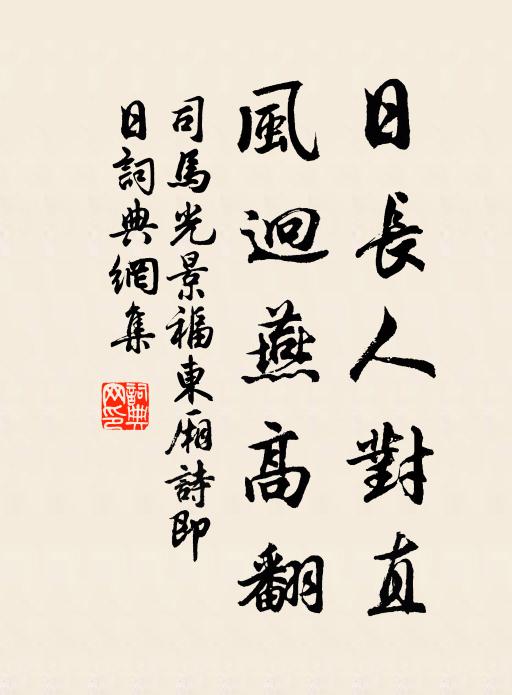 日長人對直
風迴燕高翻
司馬光景福東廂詩即
日詞典網集
詞典
网印